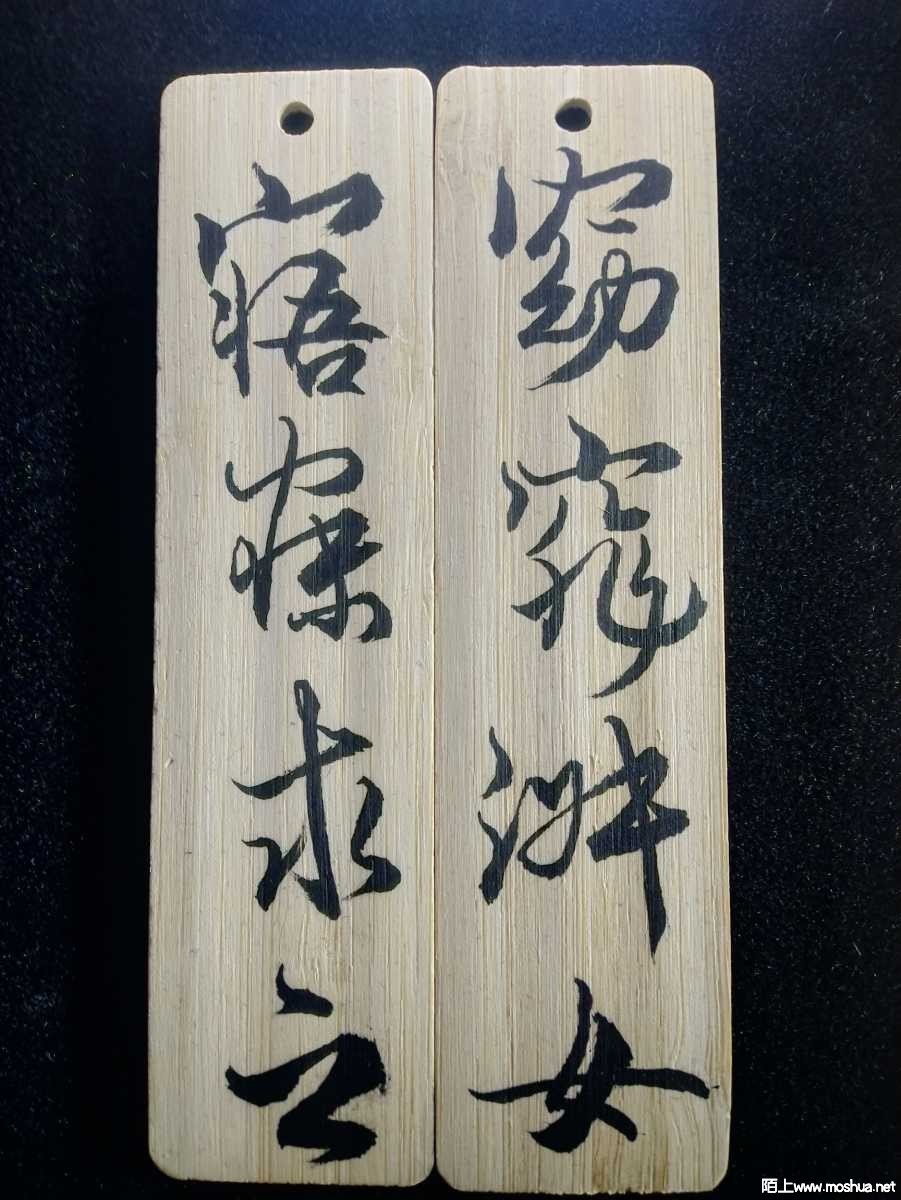 窈窕淑女
寤寐求之
陌上www.moshua.net